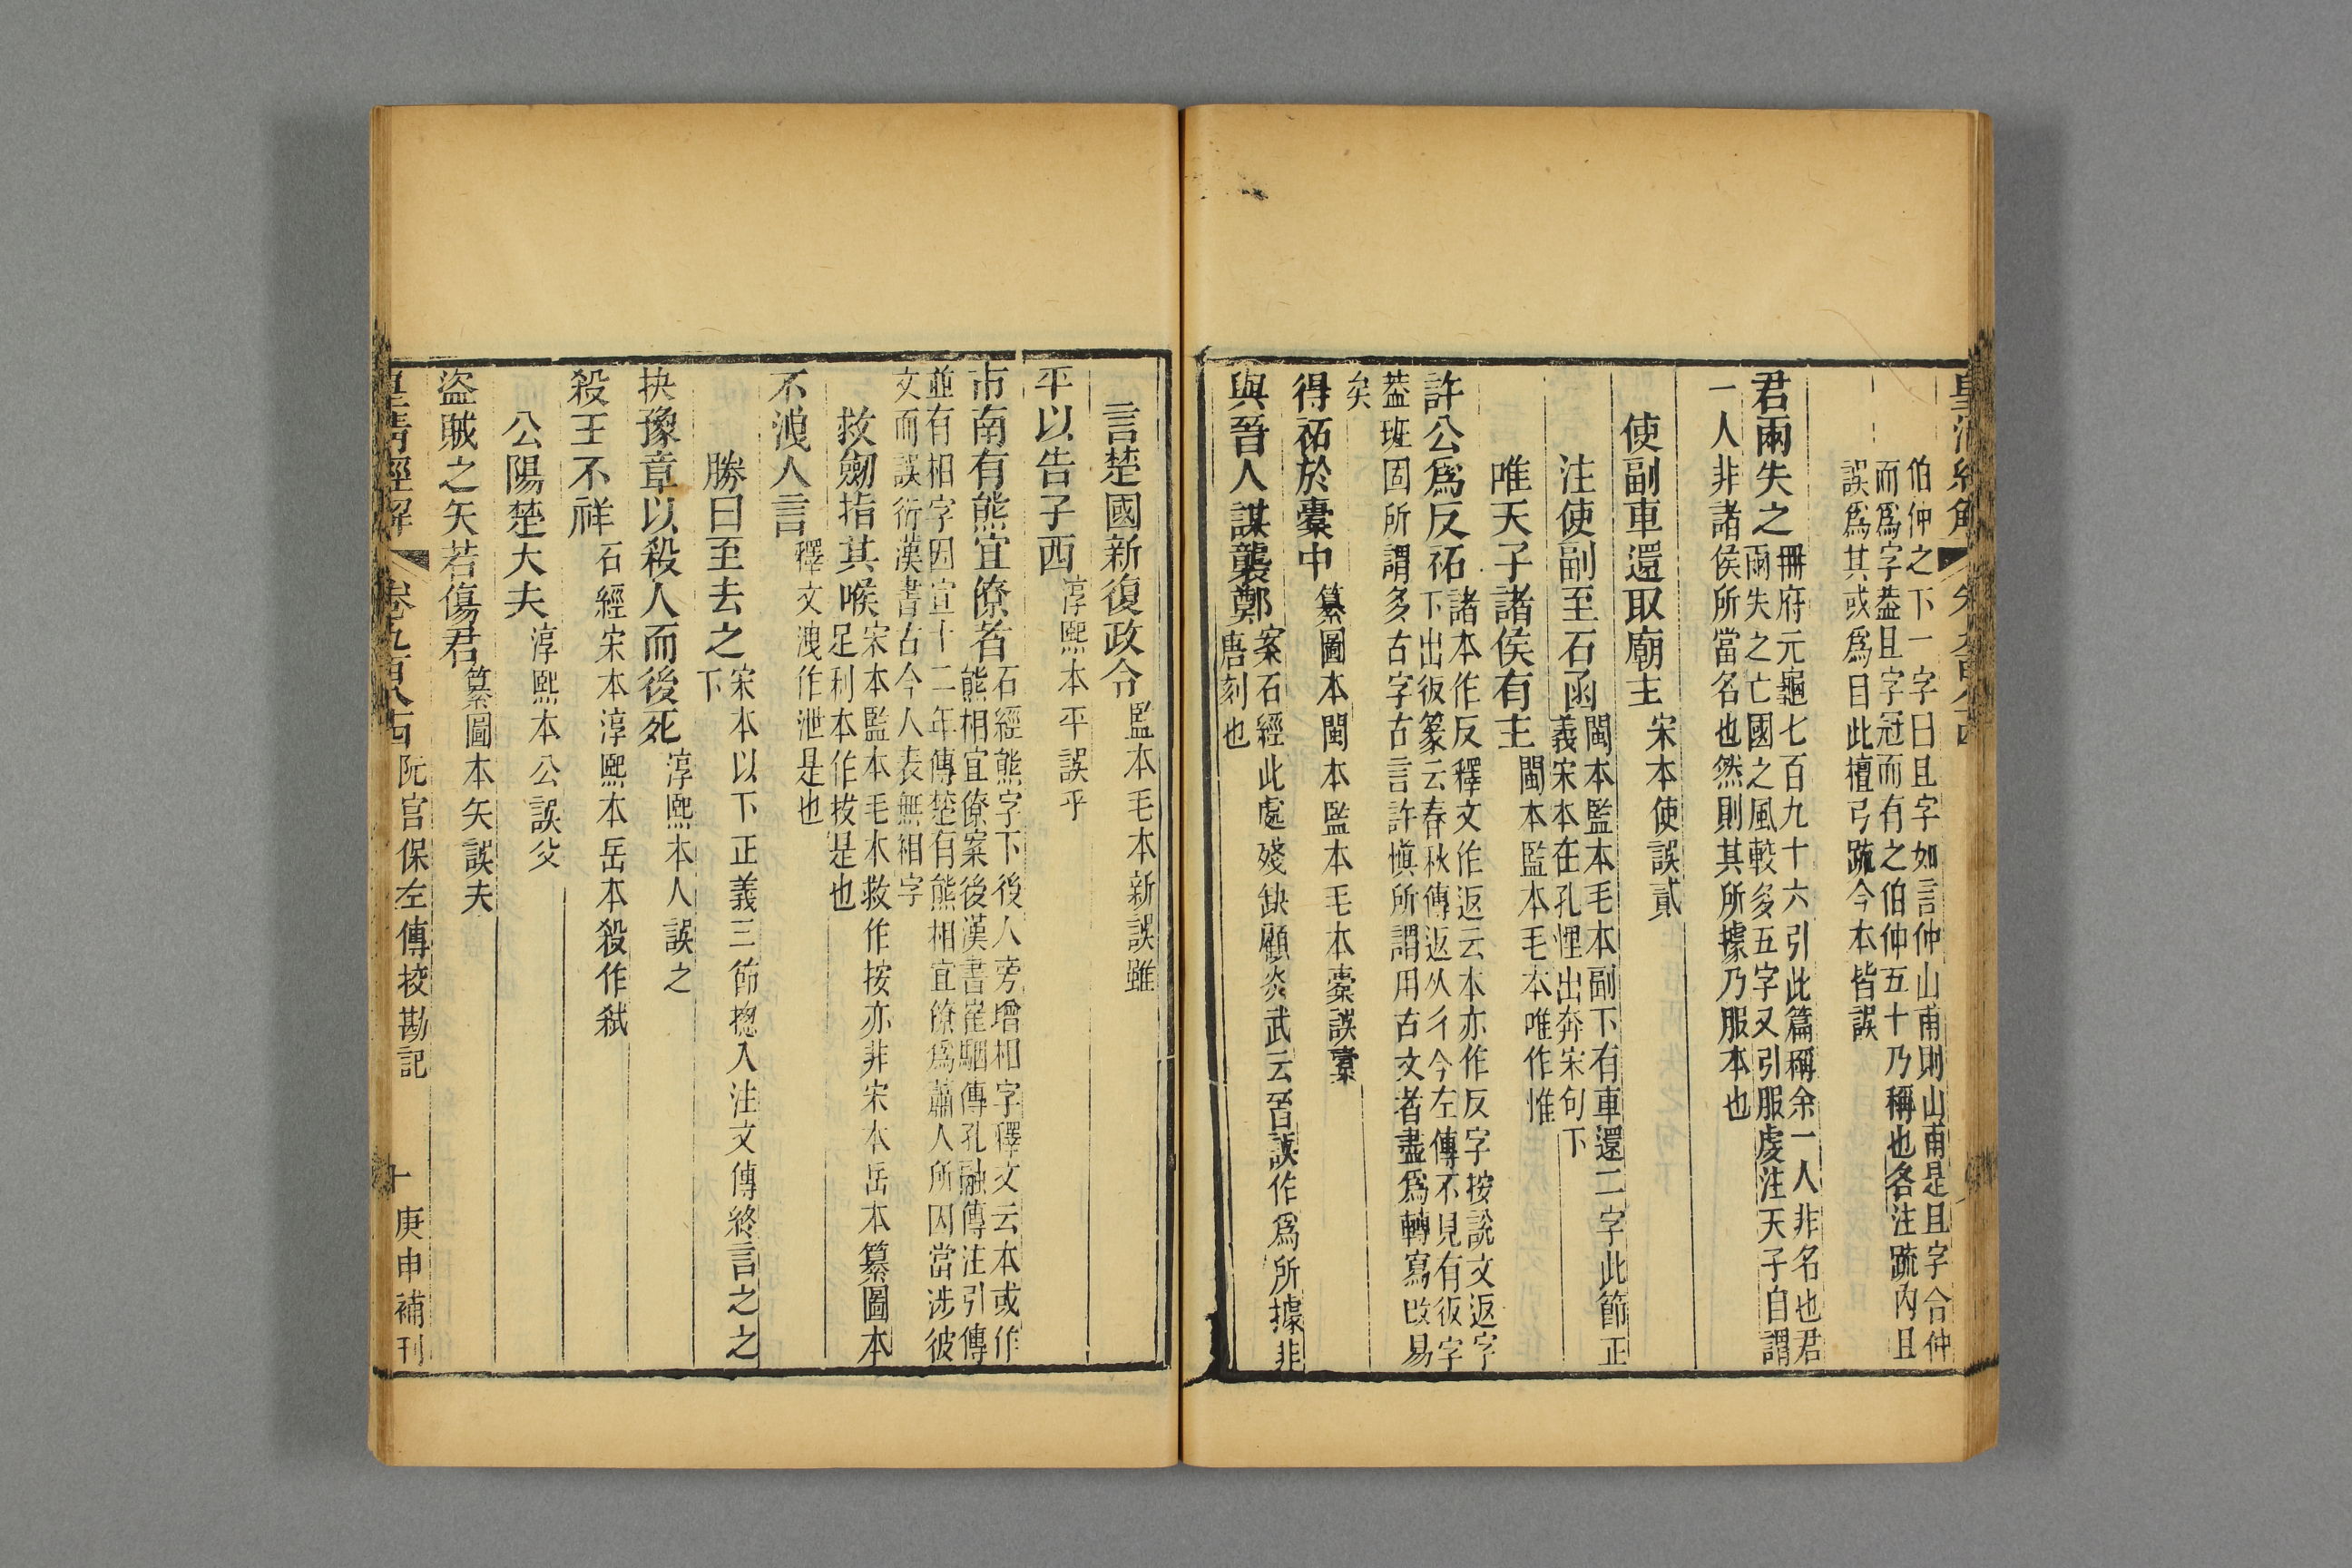 皇清經解
伯仲之下一字曰且字如言仲山甫則山甫是且字合仲
而爲字葢且字冠而有之伯仲五十乃稱也各注疏內且
誤爲其或爲目此檀弓疏今本皆誤
君兩失之冊府元龜七百九十六引此篇稱余一人非名也君
兩失之亡國之風較多五字又引服虔注天子自謂
一人非諸侯所當名也然則其所據乃服本也
使副車還取廟主宋本使誤貳
注使副至石函閩本監本毛本副下有車還二字此節正
義宋本在孔悝出奔宋句下
唯天子諸侯有主閩本監本毛本唯作惟
許公爲反祏諸本作反釋文作返云本亦作反字按說文返字
下出彶篆云春秋傳返从彳今左傳不見有彶字
葢班固所謂多古字古言許愼所謂用古文者盡爲轉寫改易
矣
得祏於橐中纂圖本閩本監本毛本橐誤橐
與晉人謀襲鄭案石經此處殘缺顧炎武云晉誤作爲所據非
唐刻也
言楚國新復政令監本毛本新誤雖
平以告子西淳熙本平誤乎
市南有熊宜僚者石經熊字下後人旁增相字釋文云本或作
熊相宜僚案後漢書崔駰傳孔融傳注引傳
並有相字因宣十二年傳楚有熊相宜僚爲蕭人所囚當涉彼
文而誤衍漢書古今人表無相字
救劒指其喉宋本監本毛本救作按亦非宋本岳本纂圖本
足利本作拔是也
不洩人言釋文洩作泄是也
勝曰至去之宋本以下正義三節摠入注文傳終言之之
下
抉豫章以殺人而後死淳熙本人誤之
殺王不祥石經宋本淳熙本岳本殺作弑
公陽楚大夫淳熙本公誤父
盜賊之矢若傷君纂圖本矢誤夫
皇清經解 卷九百八十四 阮宮保左傳挍勘記 十 庚申補刊